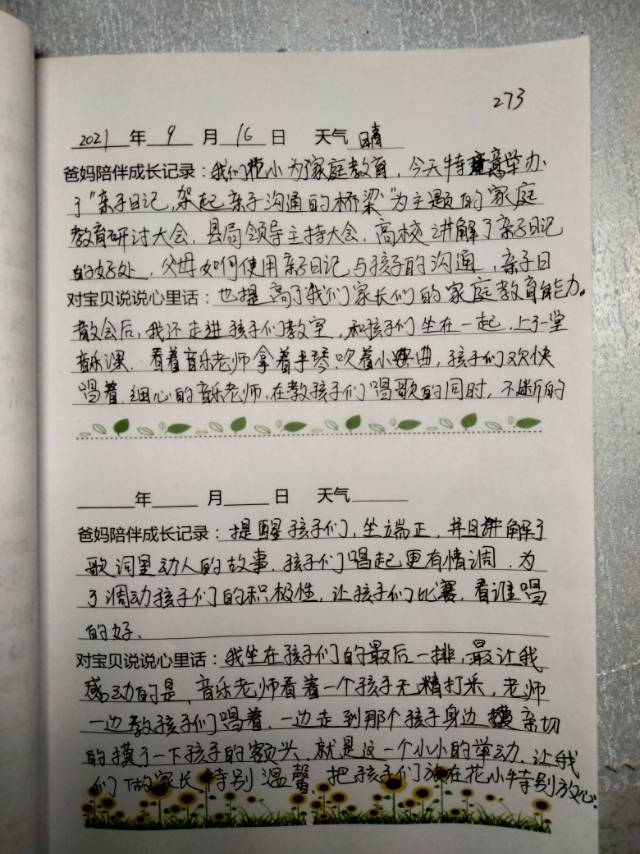 273
2021 年 9 月 16 日 天气 晴
爸妈陪伴成长记录：我们花小为家庭教育，今天特意举办
了"亲子日记，架起亲子沟通的桥梁"为主题的家庭
教育研讨大会，县局领导主持大会，高校讲解了亲子日记
的好处，父母如何使用亲子日记与孩子的沟通，亲子日
对宝贝说说心里话：也提高了我们家长们的家庭教育能力。
散会后，我还走进孩子们教室，和孩子们坐在一起，上了一堂
音乐课．看着音乐老师拿着手琴吹着小曲，孩子们欢快
唱着，细心的音乐老师，在教孩子们唱歌的同时，不断的
年 月 日 天气
爸妈陪伴成长记录：提醒孩子们，坐端正，并且讲解了
歌词里动人的故事．孩子们唱起更有情调．为
了调动孩子们的积极性，让孩子们比赛，看谁唱
的好．
对宝贝说说心里话：我坐在孩子们的最后一排，最让我
感动的是，音乐老师看着一个孩子无精打采，老师
一边教孩子们唱着，一边走到那个孩子身边，亲切
的摸了一下孩子的额头，就是这一个小小的举动，让我
们做家长特别温馨，把孩子们放在花小特别放心．